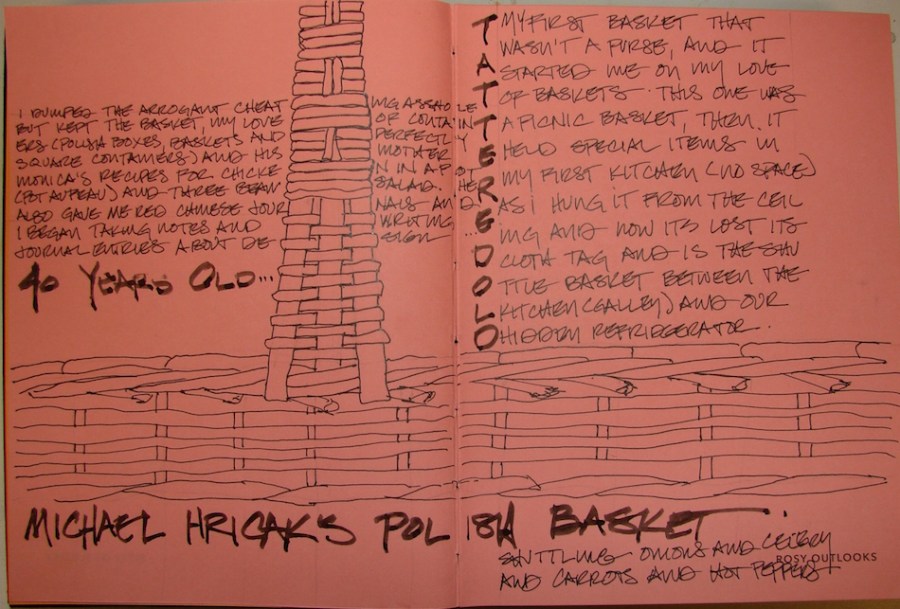 I DUMPED THE ARROGANT CHEATING ASSHOLE
BUT KEPT THE BASKET, MY LOVE OF CONTAIN
ERS (POLISH BOXES, BASKETS AND PERFECTLY
SQUARE CONTAINERS) AND HIS MOTHER
MONICA'S RECIPES FOR CHICKEN IN A POT
(POT AU PEAU) AND THREE BEAN SALAD. HE
ALSO GAVE ME RED CHINESE JOURNALS AND
I BEGAN TAKING NOTES AND WRITING
JOURNAL ENTRIES ABOUT DESIGN...
40 YEARS OLD...
TATTERED OLD
MY FIRST BASKET THAT
WASN'T A PURSE, AND IT
STARTED ME ON MY LOVE
OF BASKETS. THIS ONE WAS
A PICNIC BASKET, THEN. IT
HELD SPECIAL ITEMS IN
MY FIRST KITCHEN (NO SPACE)
AS I HUNG IT FROM THE CEIL
ING AND NOW ITS LOST ITS
CLOTH TAG AND IS THE SHU
TTLE BASKET BETWEEN THE
KITCHEN (GALLEY) AND OUR
HIDDEN REFRIDGERATOR.
MICHAEL HRICAK'S POLISH BASKET.
SHUTTLING ONIONS AND CELERY
AND CARROTS AND HOT PEPPERS +
ROSY OUTLOOKS